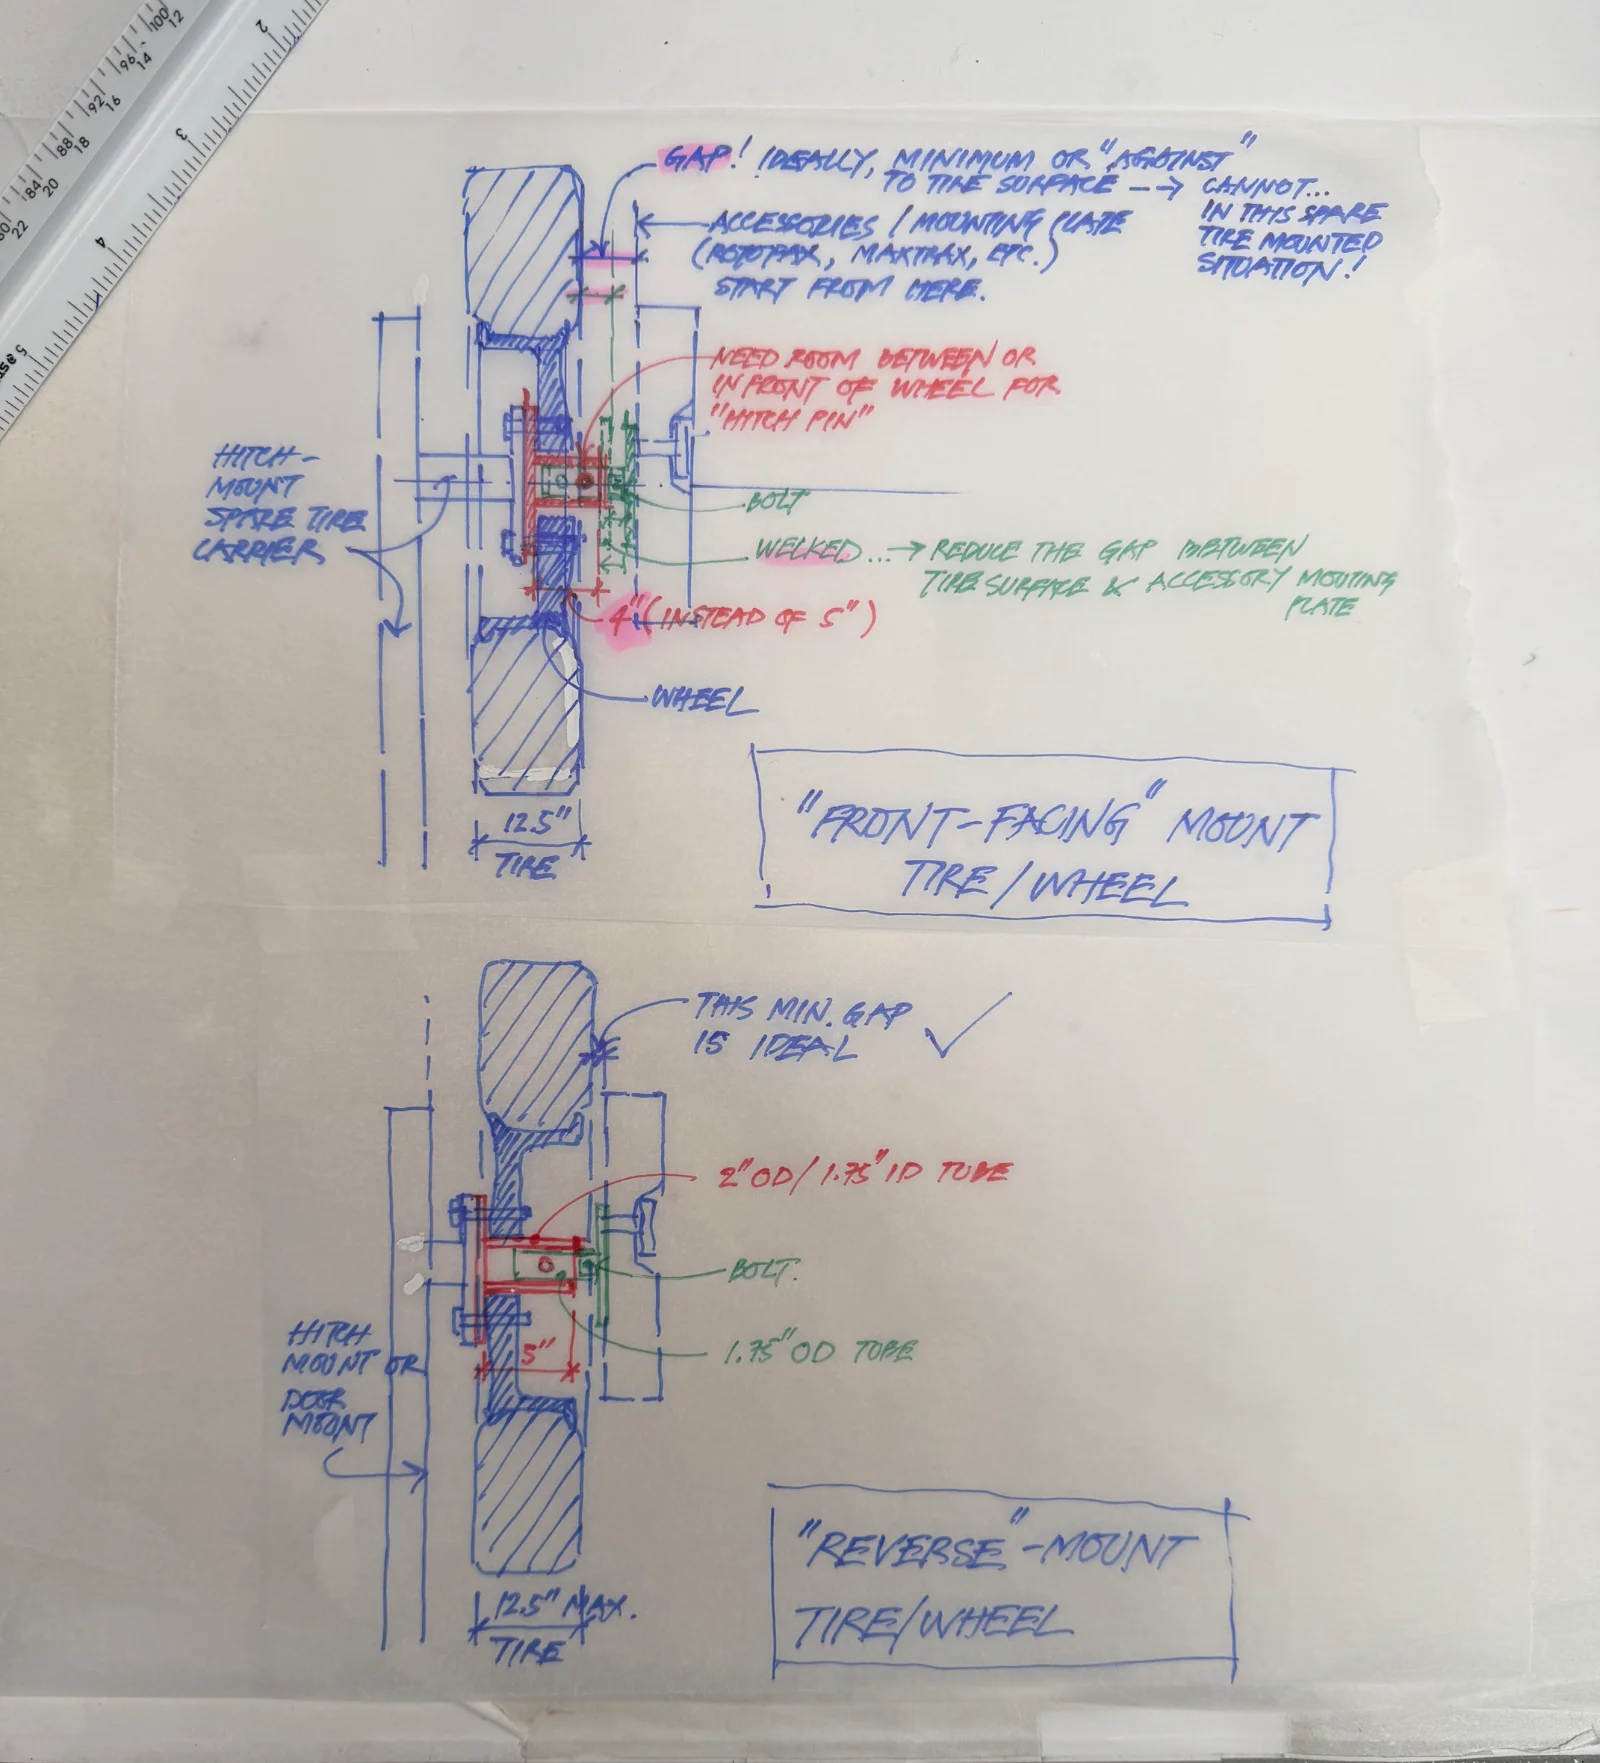 100
12
96
14
92
16
88
18
84
20
80
22
2
3
4
5
GAP! IDEALLY, MINIMUM OR "AGAINST"
TO TIRE SURFACE --→ CANNOT...
IN THIS SPARE
TIRE MOUNTED
SITUATION!
ACCESSORIES / MOUNTING PLATE
(ROTOPAX, MAXTRAX, ETC.)
START FROM HERE.
NEED ROOM BETWEEN OR
IN FRONT OF WHEEL FOR
"HITCH PIN"
HITCH-
MOUNT
SPARE TIRE
CARRIER
BOLT
WELKED...→ REDUCE THE GAP BETWEEN
TIRE SURFACE & ACCESSORY MOUTING
PLATE
4" (INSTEAD OF 5")
WHEEL
12.5"
TIRE
"FRONT-FACING" MOUNT
TIRE/WHEEL
THIS MIN. GAP
IS IDEAL ✓
2" OD/1.75" ID TUBE
BOLT.
1.75" OD TUBE
5"
HITCH
MOUNT OR
DOOR
MOUNT
12.5" MAX.
TIRE
"REVERSE"-MOUNT
TIRE/WHEEL